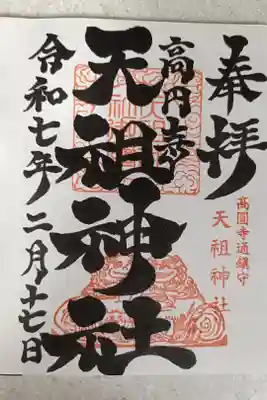 奉拝
高圓寺通鎮守
天祖神社
高円寺
天祖神社
令和七年二月十七日